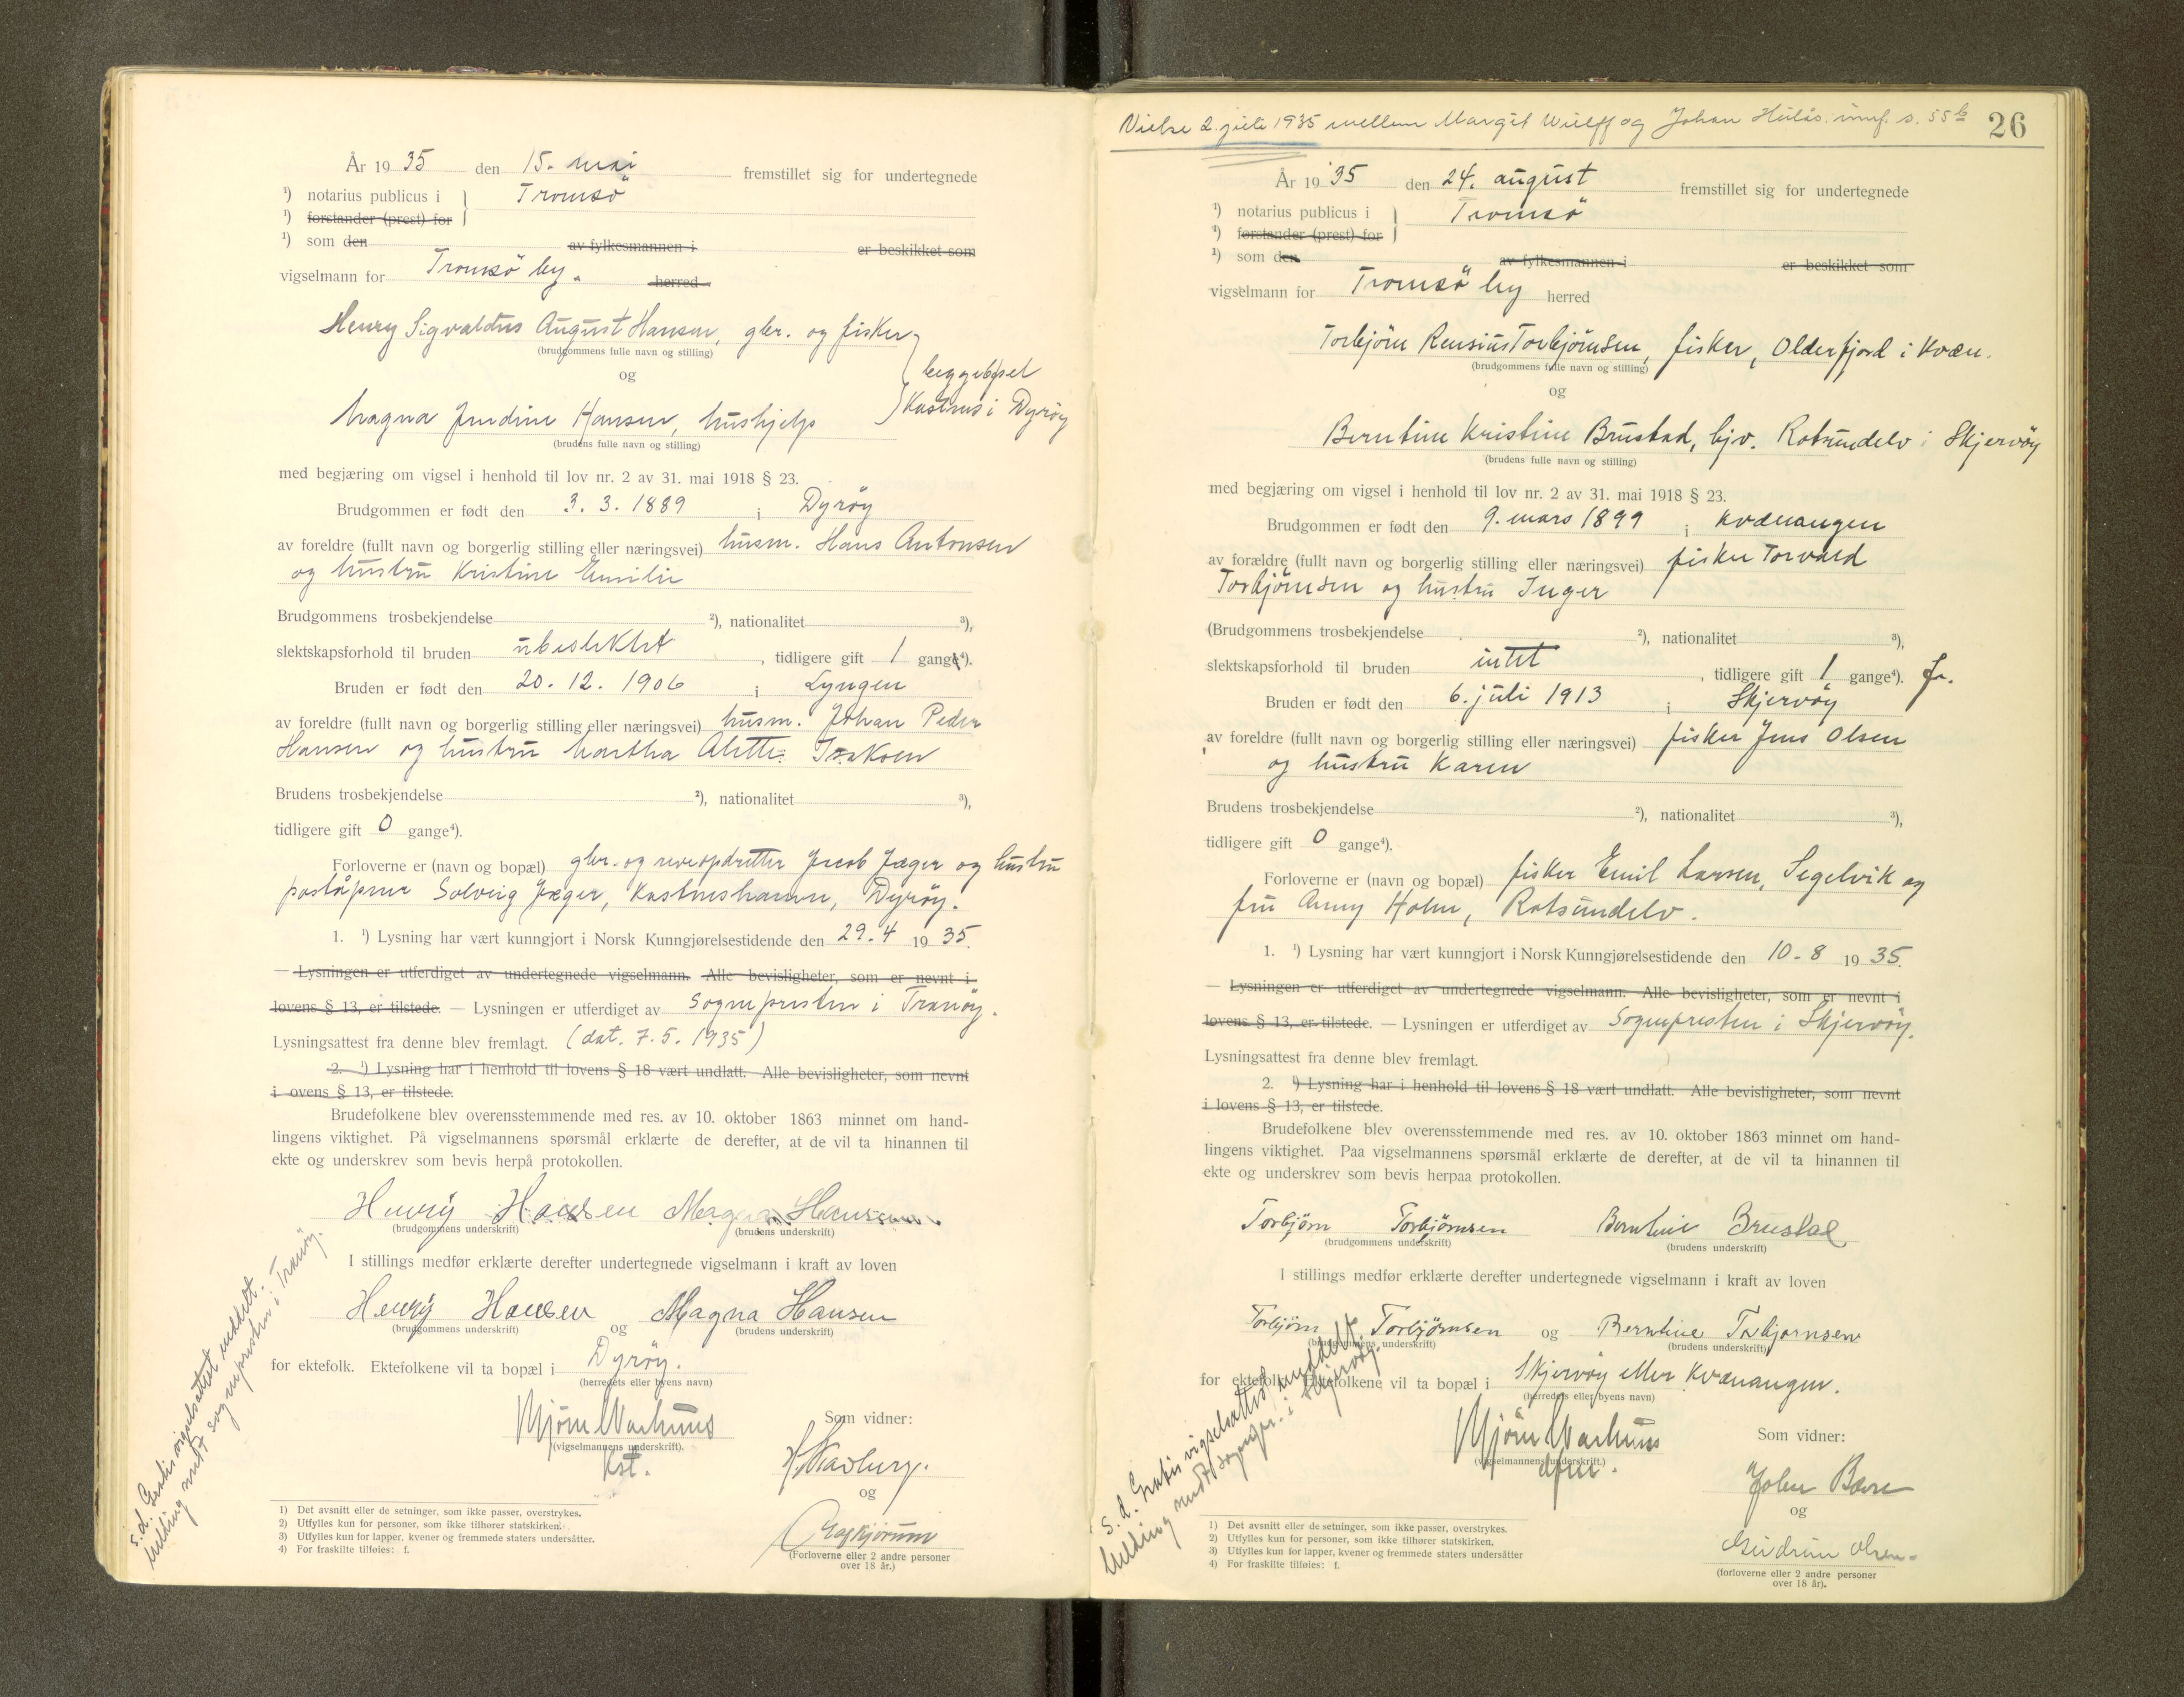 År 19 35 den 15. mai fremstillet sig for undertegnede
¹) notarius publicus i } Tromsö
¹) forstander (prest) for
¹) som den av fylkesmannen i er beskikket som
vigselmann for Tromsö by. herred
Henry Sigvaldus August Hansen, gbr. og fisker
(brudgommens fulle navn og stilling)
og
Magna Jendine Hansen, hushjelp
(brudens fulle navn og stilling)
begge bopel
Kastnes i Dyröy
med begjæring om vigsel i henhold til lov nr. 2 av 31. mai 1918 § 23.
Brudgommen er født den 3. 3. 1889 i Dyröy
av foreldre (fullt navn og borgerlig stilling eller næringsvei) husm. Hans Antonsen
og hustru Kristine Emilie
Brudgommens trosbekjendelse ²), nationalitet ³),
slektskapsforhold til bruden ubeslektet, tidligere gift 1 gange⁴).
Bruden er født den 20. 12. 1906 i Lyngen
av foreldre (fullt navn og borgerlig stilling eller næringsvei) husm. Johan Peder
Hansen og hustru Martha Alette Isaksen
Brudens trosbekjendelse ²), nationalitet ³),
tidligere gift 0 gange⁴).
Forloverne er (navn og bopæl) gbr. og reveopdretter Jacob Jæger og hustru
poståpner Solveig Jæger, Kastneshamn, Dyröy.
1. ¹) Lysning har vært kunngjort i Norsk Kunngjørelsestidende den 29. 4 19 35.
— Lysningen er utferdiget av undertegnede vigselmann. Alle bevisligheter, som er nevnt i
lovens § 13, er tilstede. — Lysningen er utferdiget av Sognepresten i Tranöy.
Lysningsattest fra denne blev fremlagt. (dat. 7. 5. 1935)
2. ¹) Lysning har i henhold til lovens § 18 vært undlatt. Alle bevisligheter, som nevnt
i ovens § 13, er tilstede.
Brudefolkene blev overensstemmende med res. av 10. oktober 1863 minnet om hand-
lingens viktighet. På vigselmannens spørsmål erklærte de derefter, at de vil ta hinannen til
ekte og underskrev som bevis herpå protokollen.
Henry Hansen Magna Hansen
(brudgommens underskrift) (brudens underskrift)
I stillings medfør erklærte derefter undertegnede vigselmann i kraft av loven
Henry Hansen og Magna Hansen
(brudgommens underskrift) (brudens underskrift)
for ektefolk. Ektefolkene vil ta bopæl i Dyröy.
(herredets eller byens navn)
(vigselmannens underskrift).
Kst.
Som vidner:
og
(Forloverne eller 2 andre personer
over 18 år.)
s.d. Gratis vigselsattest meddelt.
Melding sendt sognepresten i Tranöy.
1) Det avsnitt eller de setninger, som ikke passer, overstrykes.
2) Utfylles kun for personer, som ikke tilhører statskirken.
3) Utfylles kun for lapper, kvener og fremmede staters undersåtter.
4) For fraskilte tilføies: f.
Vielse 2. juli 1935 mellem Margit Wulff og Johan Hulås innf. s. 55 b
26
År 19 35 den 24. august fremstillet sig for undertegnede
¹) notarius publicus i } Tromsö
¹) forstander (prest) for
¹) som den av fylkesmannen i er beskikket som
vigselmann for Tromsö by herred
Torbjörn Rensius Torbjörnsen, fisker, Olderfjord i Kvæn.
(brudgommens fulle navn og stilling)
og
Berntine Kristine Brustad, hjv. Rotsundelv i Skjervöy
(brudens fulle navn og stilling)
med begjæring om vigsel i henhold til lov nr. 2 av 31. mai 1918 § 23.
Brudgommen er født den 9. mars 1899 i Kvænangen
av forældre (fullt navn og borgerlig stilling eller næringsvei) fisker Torvald
Torbjörnsen og hustru Inger
(Brudgommens trosbekjendelse ²), nationalitet ³),
slektskapsforhold til bruden intet, tidligere gift 1 gange⁴). fr.
Bruden er født den 6. juli 1913 i Skjervöy
av foreldre (fullt navn og borgerlig stilling eller næringsvei) fisker Jens Olsen
og hustru Karen
Brudens trosbekjendelse ²), nationalitet ³),
tidligere gift 0 gange⁴).
Forloverne er (navn og bopæl) fisker Emil Larsen, Segelvik og
fru Anny Holm, Rotsundelv.
1. ¹) Lysning har vært kunngjort i Norsk Kunngjørelsestidende den 10. 8 19 35.
— Lysningen er utferdiget av undertegnede vigselmann. Alle bevisligheter, som er nevnt i
lovens § 13, er tilstede. — Lysningen er utferdiget av Sognepresten i Skjervöy.
Lysningsattest fra denne blev fremlagt.
2. ¹) Lysning har i henhold til lovens § 18 vært undlatt. Alle bevisligheter, som nevnt
i lovens § 13, er tilstede.
Brudefolkene blev overensstemmende med res. av 10. oktober 1863 minnet om hand-
lingens viktighet. Paa vigselmannens spørsmål erklærte de derefter, at de vil ta hinannen til
ekte og underskrev som bevis herpaa protokollen.
Torbjörn Torbjörnsen Berntine Brustad
(brudgommens underskrift) (brudens underskrift)
I stillings medfør erklærte derefter undertegnede vigselmann i kraft av loven
Torbjörn Torbjörnsen og Berntine Torbjørnsen
(brudgommens underskrift) (brudens underskrift)
for ektefolk. Ektefolkene vil ta bopæl i Skjervöy eller Kvænangen.
(herredets eller byens navn)
(vigselmannens underskrift.)
Som vidner:
og
Gudrun Olsen
(forloverne eller 2 andre personer
over 18 år).
s. d. Gratis vigselsattest meddelt.
Melding sendt sognepr. i Skjervöy.
1) Det avsnitt eller de setninger, som ikke passer, overstrykes.
2) Utfylles kun for personer, som ikke tilhører statskirken.
3) Utfylles kun for lapper, kvener og fremmede staters undersåtter
4) For fraskilte tilføies: f.